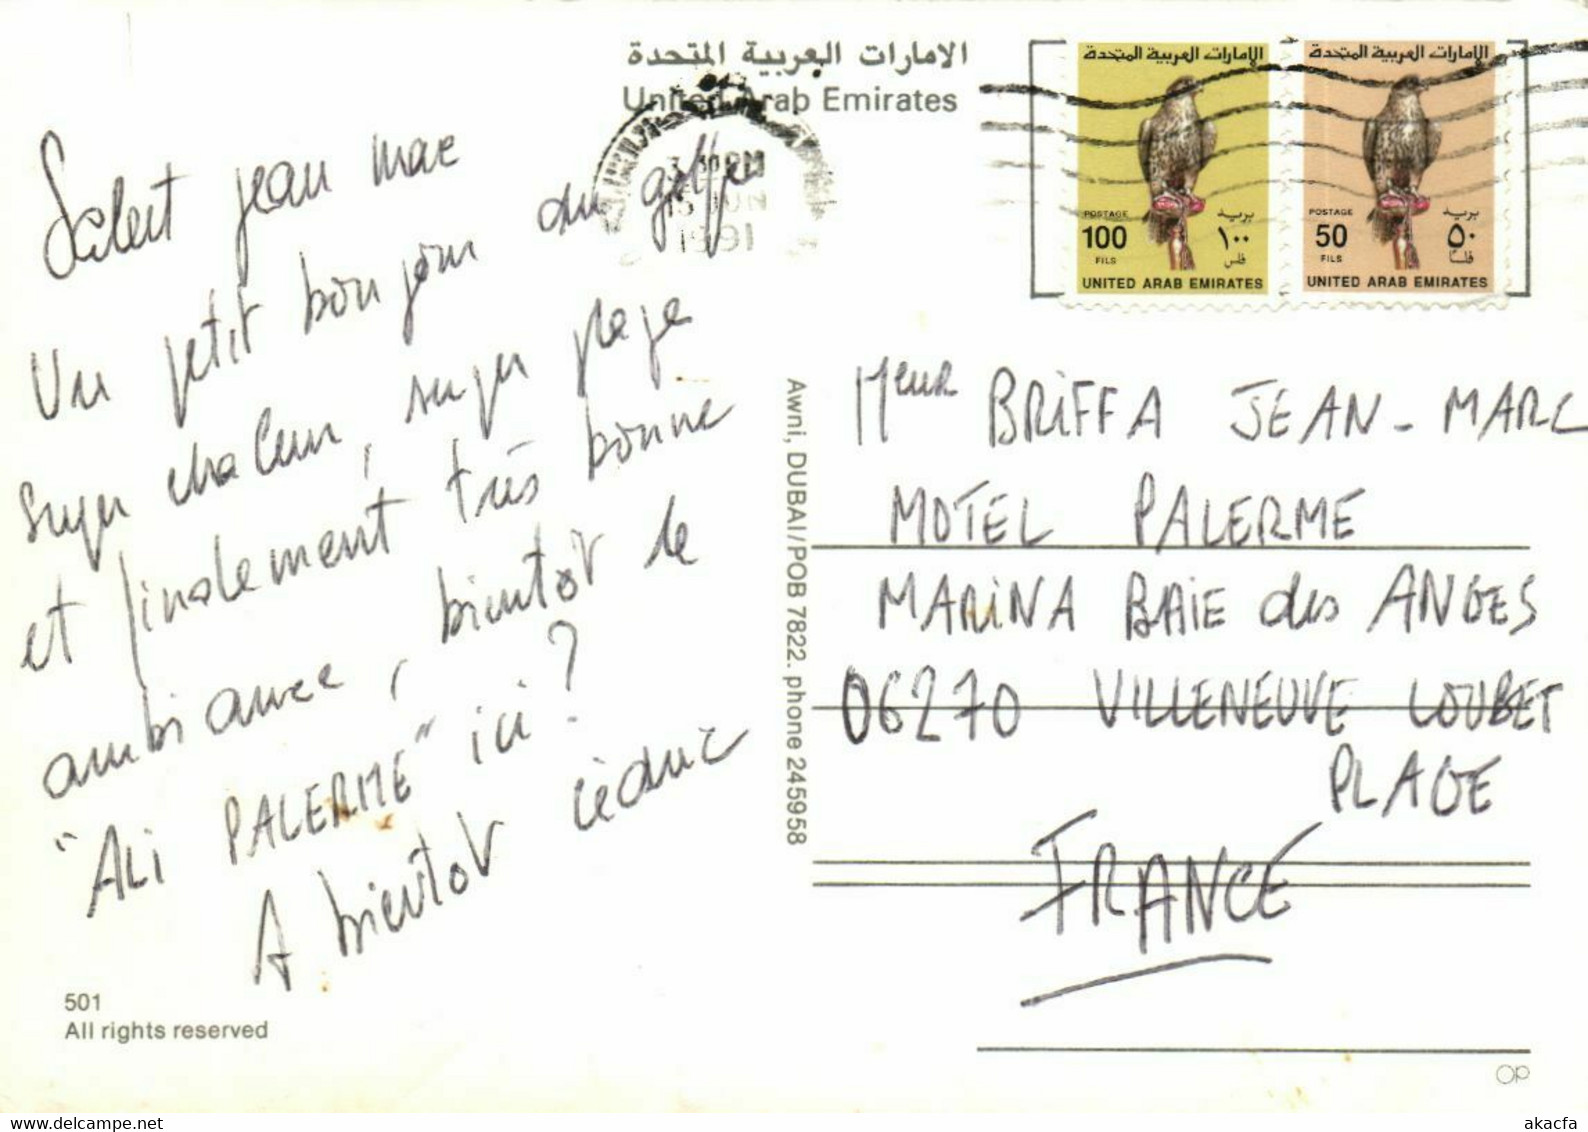 الامارات العربية المتحدة
United Arab Emirates
Salut jean marc
Un petit bonjour du golfe
super chaleur, super plage
et finalement très bonne
ambiance, bientôt le
"ALI PALERME" ici ?
A bientôt Cédric
501
All rights reserved
Awni, DUBAI/POB 7822. phone 245958
PM
JUN
1991
الإمارات العربية المتحدة
POSTAGE
بريد
100
١٠٠
FILS
فلس
UNITED ARAB EMIRATES
الإمارات العربية المتحدة
POSTAGE
بريد
50
٥٠
FILS
فلسا
UNITED ARAB EMIRATES
Meur BRIFFA JEAN-MARC
MOTEL PALERME
MARINA BAIE des ANGES
06270 VILLENEUVE LOUBET
PLAGE
FRANCE
OP
delcampe.net
akacfa